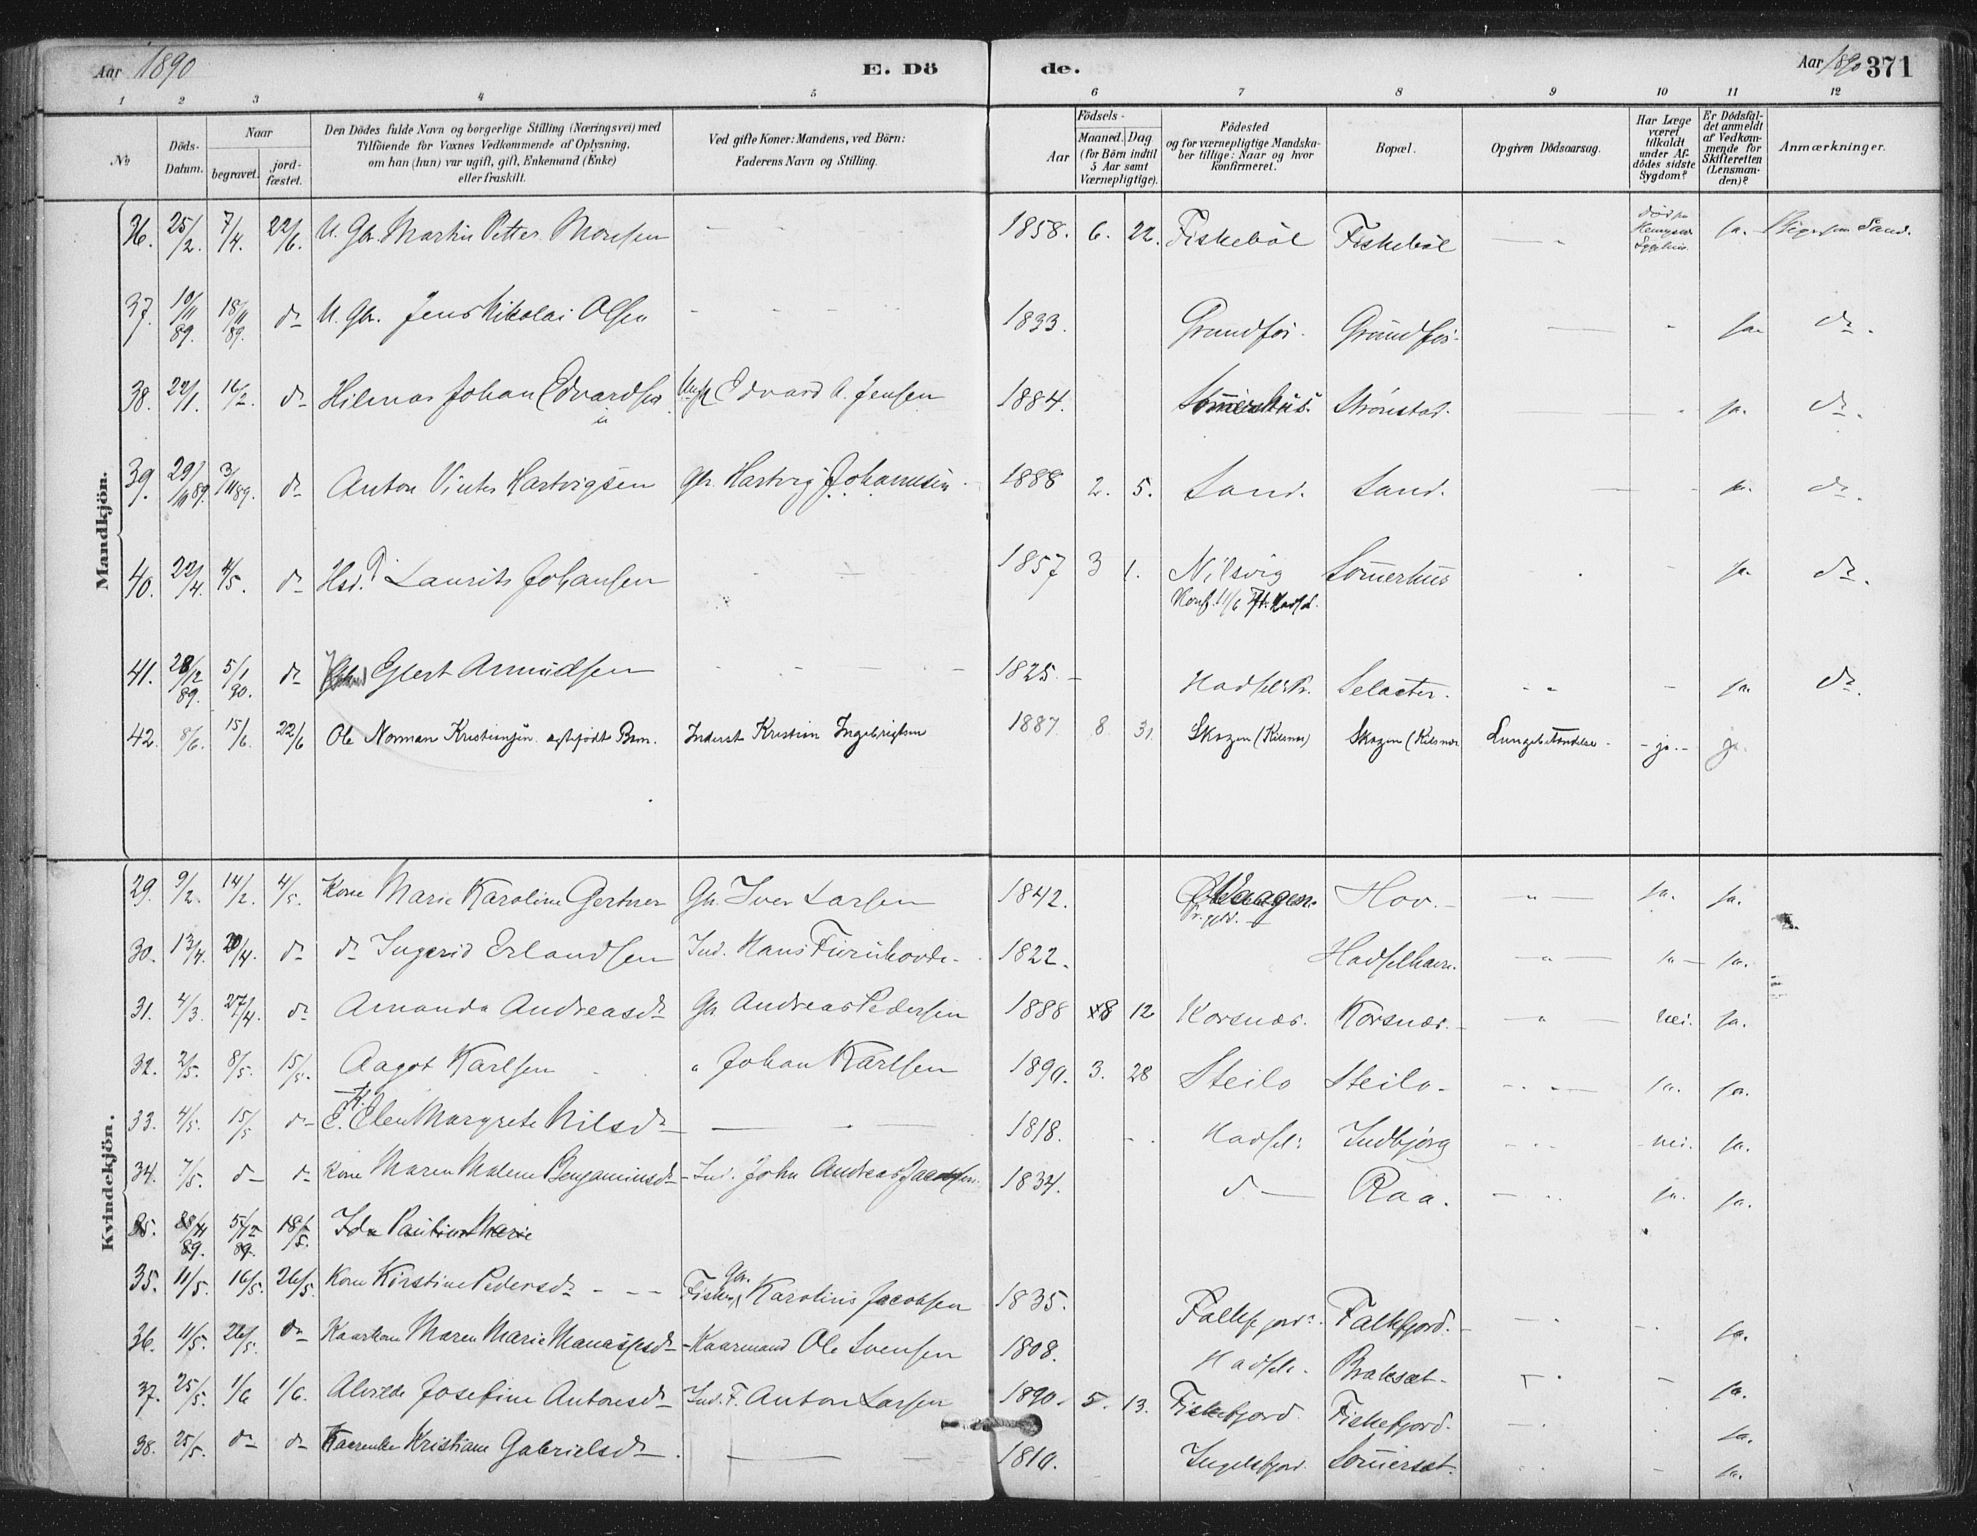 Aar 1890 E. Dö de. Aar 1890 371
1 2 3 4 5 6 7 8 9 10 11 12
No
Döds-Datum.
Naar
begravet.
jordfæstet.
Den Dödes fulde Navn og borgerlige Stilling (Næringsvei) med
Tilföiende for Voxnes Vedkommende af Oplysning,
om han (hun) var ugift, gift, Enkemand (Enke)
eller fraskilt.
Ved gifte Koner: Mandens, ved Börn:
Faderens Navn og Stilling.
Födsels-
Aar
Maaned. Dag
(for Börn indtil
5 Aar samt
Værnepligtige).
Födested
og for værnepligtige Mandskaber tillige: Naar og hvor
konfirmeret.
Bopæl.
Opgiven Dödsaarsag.
Har Læge
været
tilkaldt
under Afdödes sidste
Sygdom?
Er Dödsfaldet anmeldt
af Vedkommende for
Skifteretten
(Lensmanden)?
Anmærkninger.
Mandkjön.
36. 25/2. 7/4. 22/6. U. Gbr. Martin Petter Monsen - - 1858. 6. 22. Fiskebøl Fiskebøl - ja. Sand.
37. 10/11 89. 15/11 89. do U. Gbr. Jens Nikolai Olsen - - - - 1833. Grundfør. Grundfør. - - ja do.
38. 22/1. 16/2. do Hilmar Johan Edvardsen Edvard A. Jensen 1884. Strønstad. - ja. do.
39. 29/10 89. 3/11 89. do Anton Vinter Hartvigsen Gbr. Hartvig Johannsen 1888 2. 5. Sand. Sand. - ja. do.
40. 22/4. 4/5. do Laurits Johansen - 1857 3 1. Nilsvig Somerhus ja. do.
Konf. 11/6
41. 28/12 89. 5/1 90. do Glert Amundsen - - - 1825. - Hadsel Pr. Selaeter. - - ja do.
42. 8/6. 15/6. 22/6 Ole Norman Kristiansen Barn. Inderst Kristian Ingebrigtsen 1887 8 31 Skogen (Kilsnes) Skogen (Kilsnes Lungebetændelse. - ja. - ja.
Kvindekjön.
29. 9/2. 14/2. 4/5. Kone Marie Karoline Gertner Gbr. Iver Larsen 1842. Vaagen. Hov. - ja. ja.
Pr.gjld.
30. 13/4. 20/4. do do Ingerid Erlandsen Ind. Hans Furuhovde - 1822. Hadselhavn. - ja - ja.
31. 4/3. 27/4. do Amanda Andreasdr Gbr Andreas Pedersen 1888 8 12 Korsnæs. Korsnæs. - nei. ja.
32. 2/5. 8/5. 15/5. Aagot Karlsen " Johan Karlsen 1890. 3. 28 Steilo Steilo - ja. ja.
33. 4/5. 15/5 do E. Elen Margrete Nilsdr - - - 1818. Hadsel Indbjørg nei. ja.
34. 7/5. do do Kone Maren Malene Benjaminsdr Ind. John Andreas Jacobsen. 1834. do Raa. - ja. ja.
35. 28/11 89. 5/12 89. 18/5. Ida Pauline Marie
35. 11/5. 16/5. 26/5. Kone Kirstine Pedersdr - - - Gbr. Fisker Karolius Jacobsen 1835. Falkfjord. Falkfjord. - ja.
36. 11/5. 26/5. do Kaarkone Maren Marie Manassesdr Kaarmand Ole Svensen 1808. Hadsel. Bræksæt. ja.
37. 25/5. 1/6 1/6. Alvilde Josefine Antonsdr Ind. F. Anton Larsen 1890. 5. 13. Fiskefjord. Fiskefjord. - ja.
38. 25/5. do do Kaarenke Kristiane Gabrielsdr. - - 1810. Ingelsfjord. Somersæt. - ja.